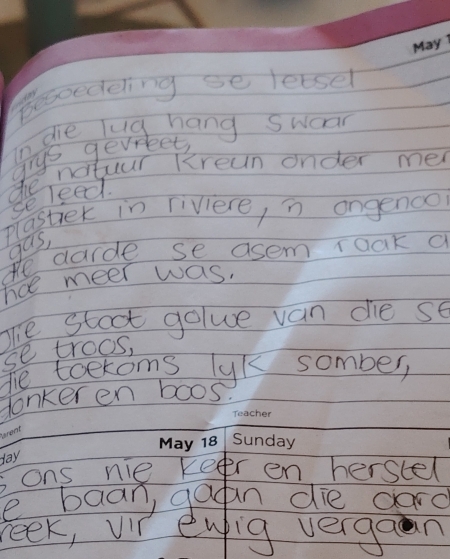 May
Besoedeling se letsel
in die lug hang swaar
grys gevreet,
die natuur kreun onder
se leed.
plastiek in riviere, 'n
gas,
die aarde se asem raak
hoe meer was.
Die stoot golwe van die
se troos,
die toekoms lyk somber,
donker en boos.
Teacher
May 18 Sunday
ons nie keer en herstel
baan, gaan die
vir ewig vergaan